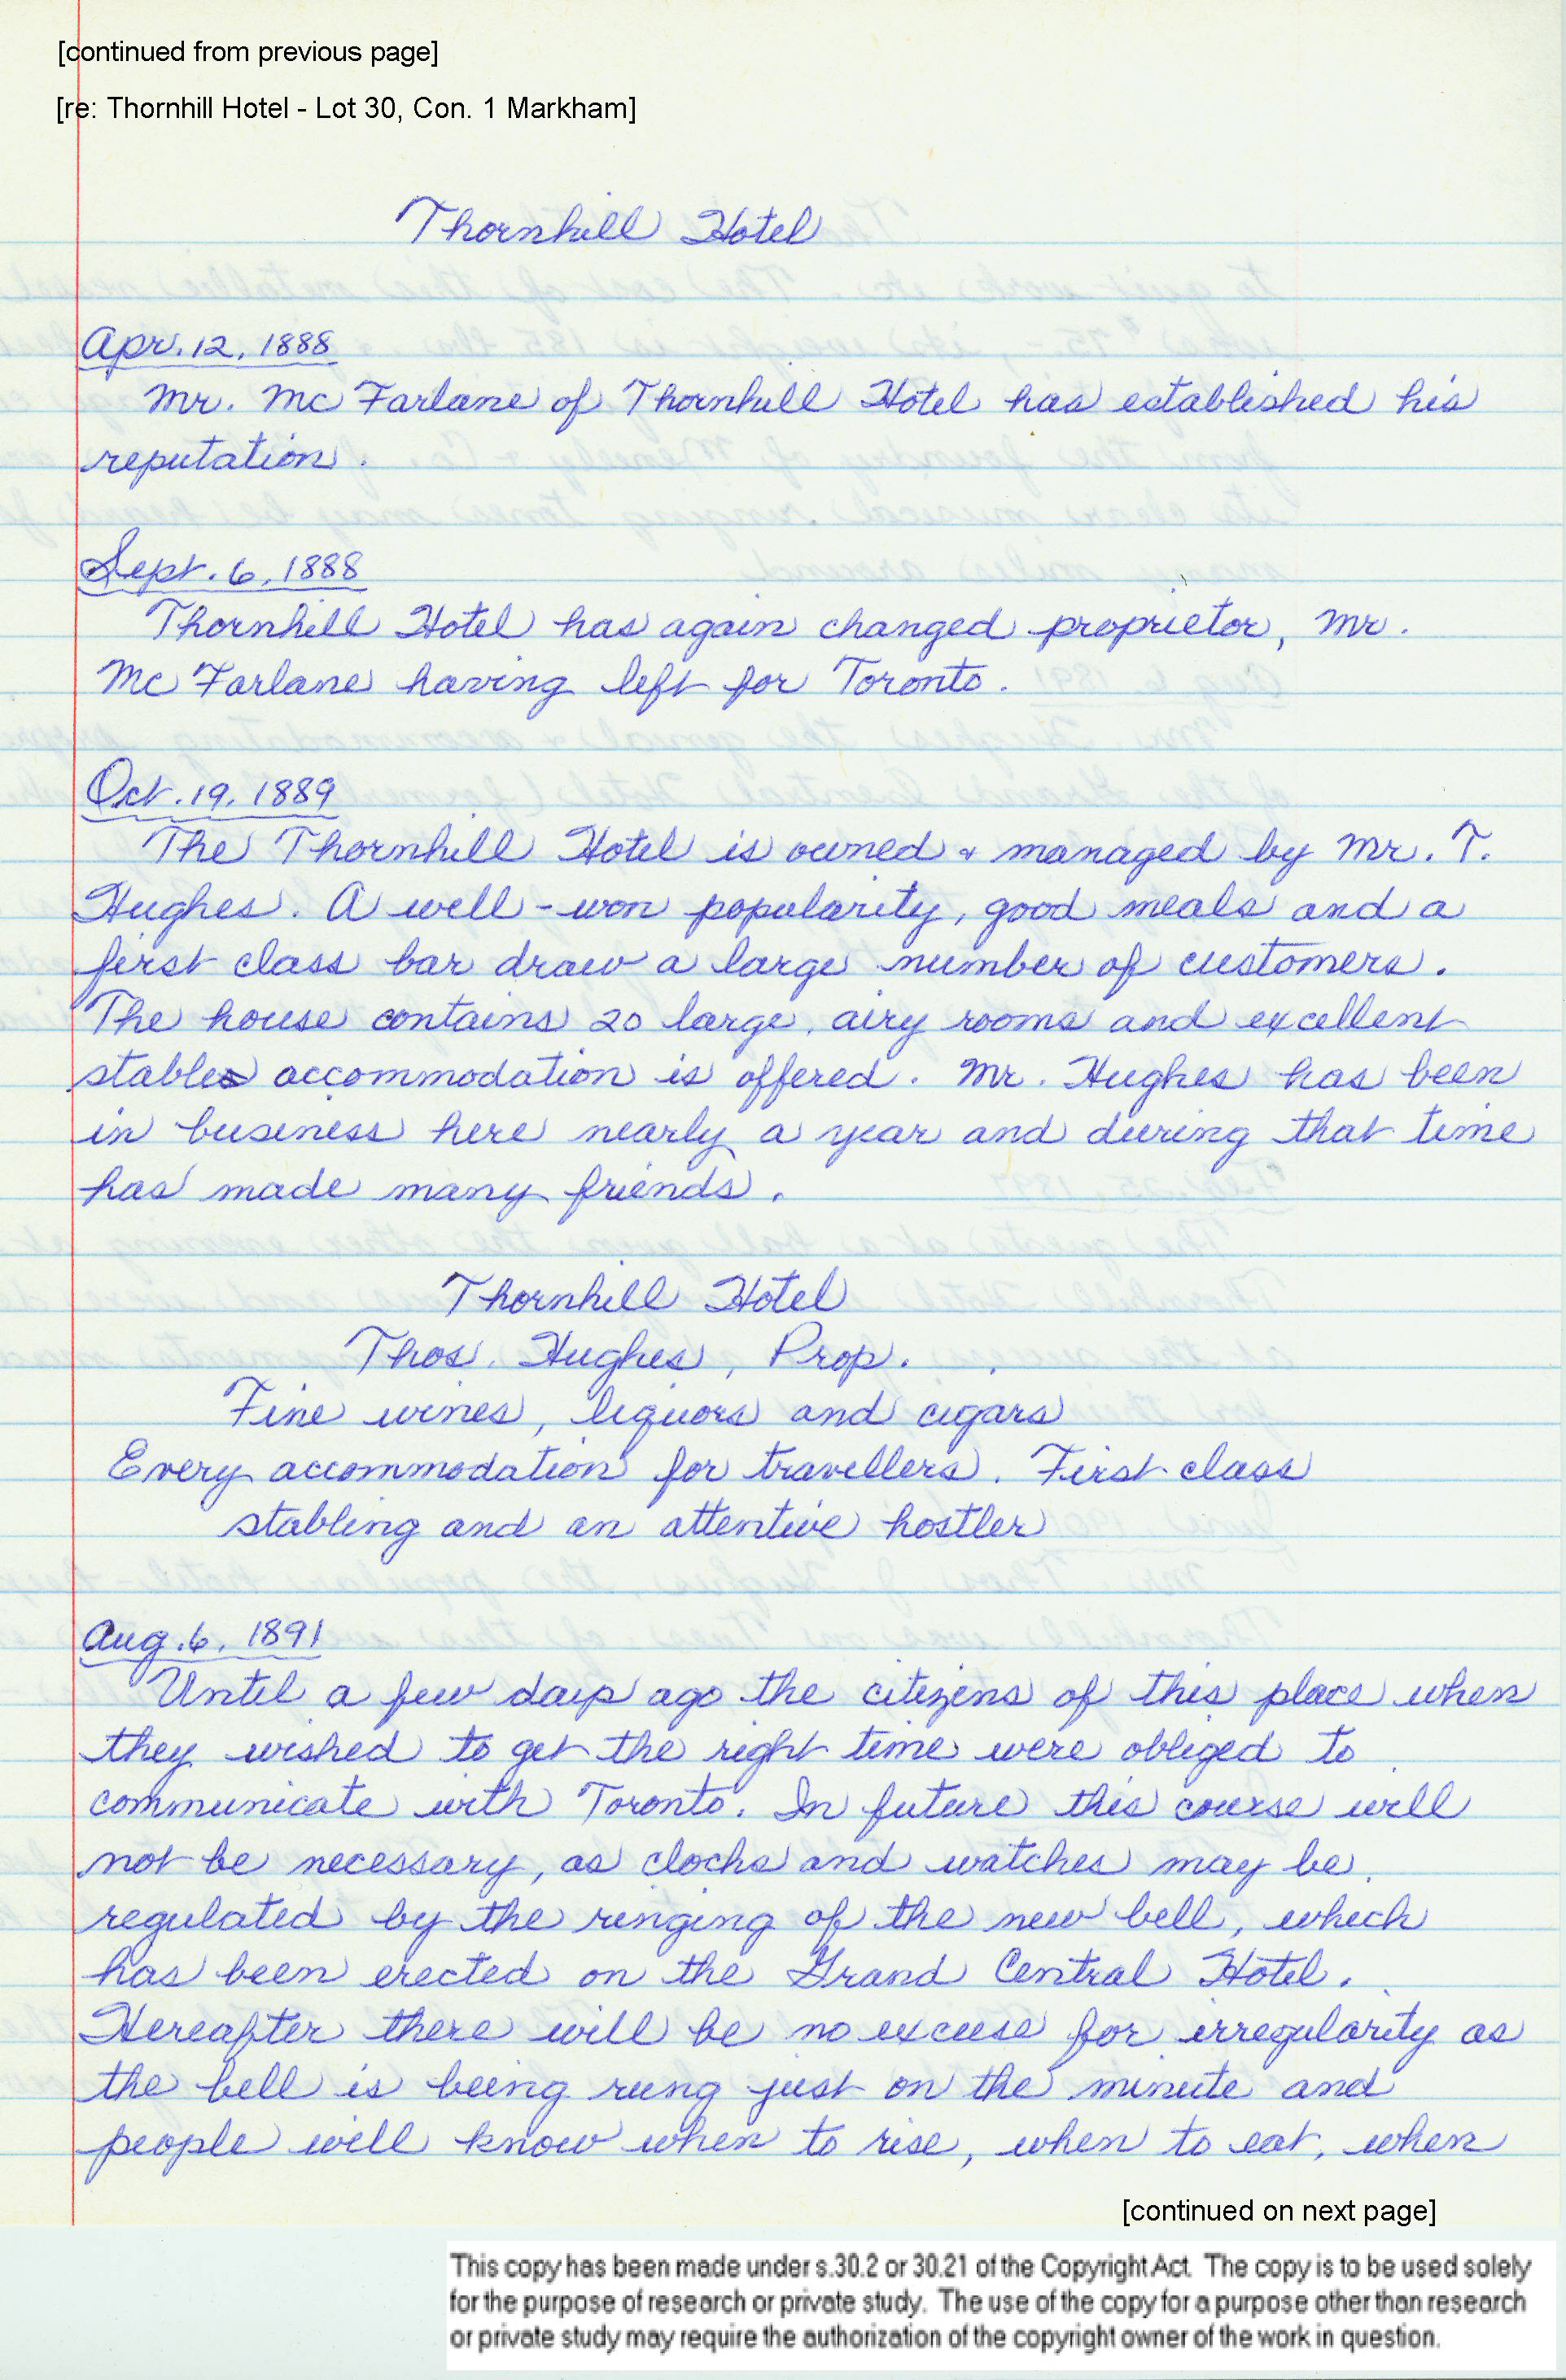 [continued from previous page]
[re: Thornhill Hotel - Lot 30, Con. 1 Markham]
Thornhill Hotel
Apr. 12, 1888
Mr. McFarlane of Thornhill Hotel has established his
reputation.
Sept. 6, 1888
Thornhill Hotel has again changed proprietor, Mr.
McFarlane having left for Toronto.
Oct. 19, 1889
The Thornhill Hotel is owned & managed by Mr. T.
Hughes. A well-won popularity, good meals and a
first class bar draw a large number of customers.
The house contains 20 large, airy rooms and excellent
stable accommodation is offered. Mr. Hughes has been
in business here nearly a year and during that time
has made many friends.
Thornhill Hotel
Thos. Hughes, Prop.
Fine wines, liquors and cigars
Every accommodation for travellers. First class
stabling and an attentive hostler
Aug. 6, 1891
Until a few days ago the citizens of this place when
they wished to get the right time were obliged to
communicate with Toronto. In future this course will
not be necessary, as clocks and watches may be
regulated by the ringing of the new bell, which
has been erected on the Grand Central Hotel.
Hereafter there will be no excuse for irregularity as
the bell is being rung just on the minute and
people will know when to rise, when to eat, when
[continued on next page]
This copy has been made under s.30.2 or 30.21 of the Copyright Act. The copy is to be used solely
for the purpose of research or private study. The use of the copy for a purpose other than research
or private study may require the authorization of the copyright owner of the work in question.